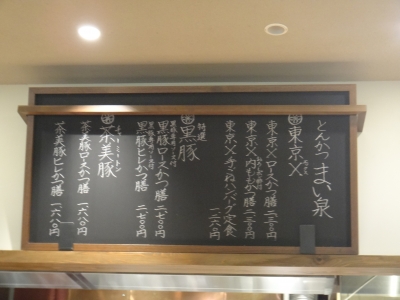 とんかつまい泉
東京X
東京Xロースかつ膳 二二三〇円
東京X 内もも
東京X手ごねハンバーグ定食
一二六〇円
特選
黒豚
黒豚ロースかつ膳 二七〇〇円
黒豚ヒレかつ膳 二七〇〇円
茶美豚
茶美豚ロースかつ膳 一六八〇円
茶美豚ヒレかつ膳 一六八〇円